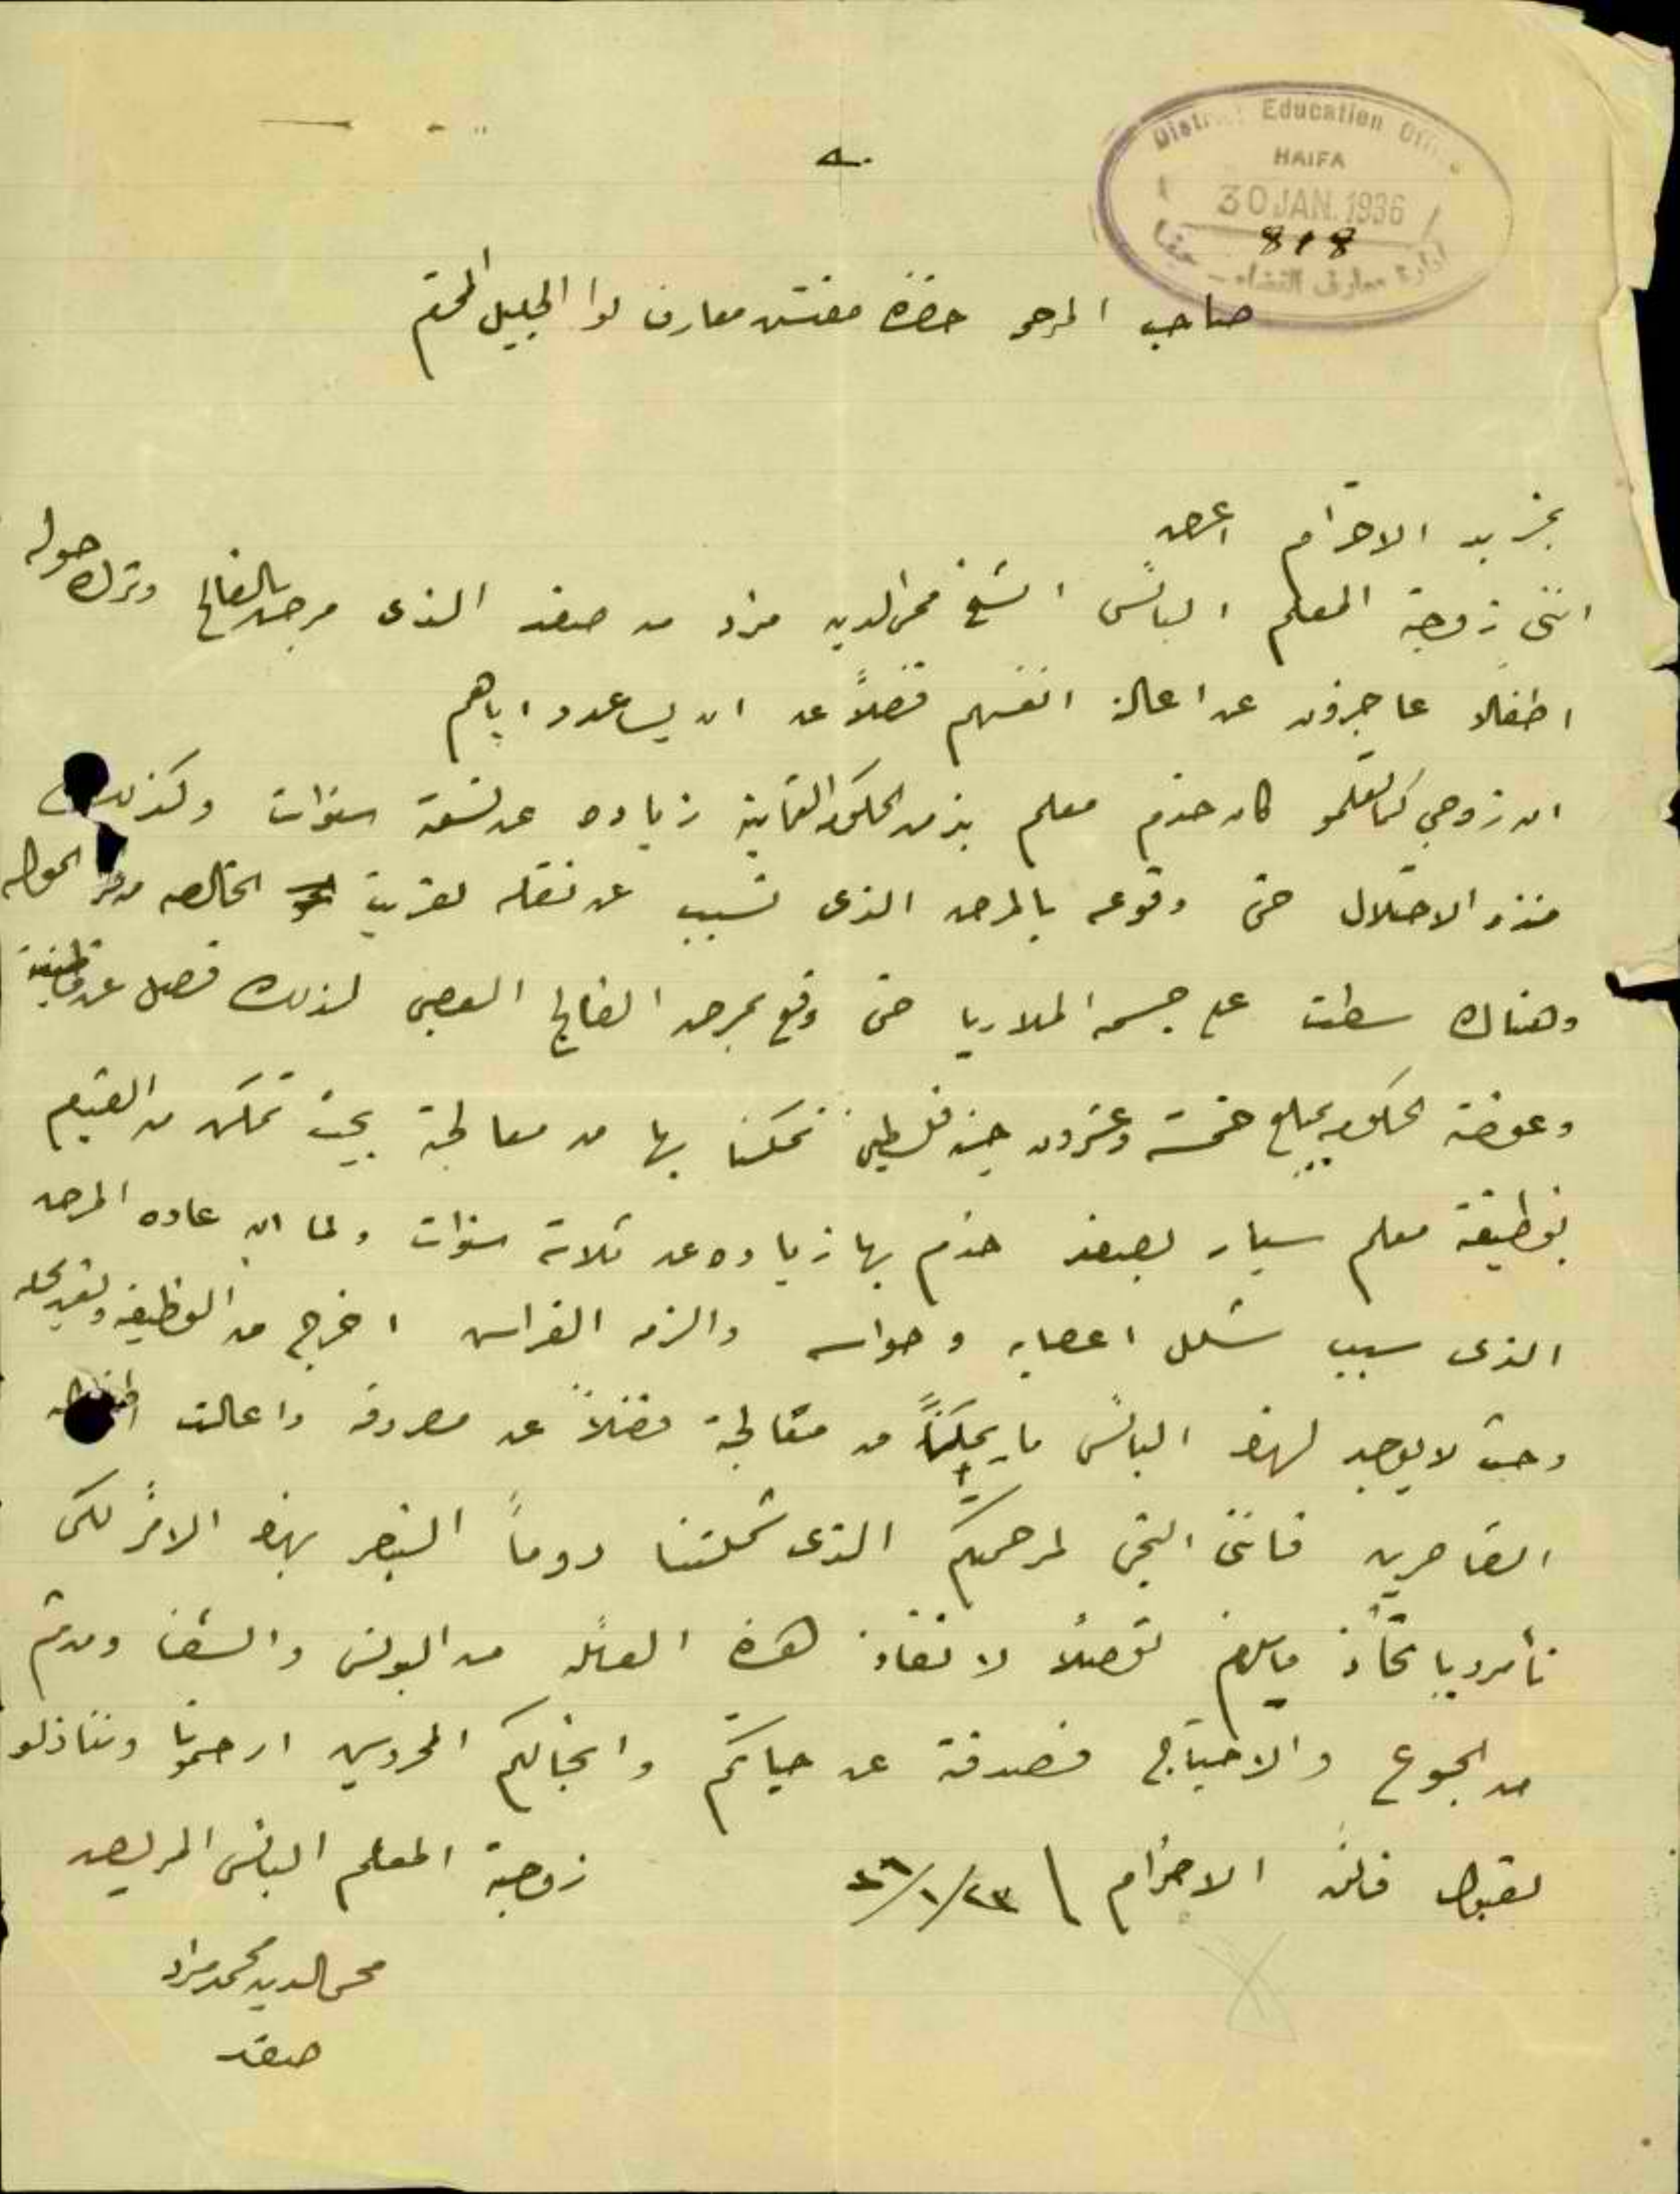 District Education Office
HAIFA
30 JAN. 1936
818
ادارة معارف القضاء - حيفا
صاحب المرحم حضرة مفتش معارف لوا الجليل المحترم
بمزيد الاحترام اعرض
انني زوجة المعلم البائس الشيخ محي الدين مراد من صفد الذى مرض بالفالج وترك حوله
اطفالا عاجزون عن اعالة انفسهم فضلاً عن ان يساعدو اباهم
ان زوجي كما تعلمو كان خدم معلم بزمن الحكومة العثمانية زياده عن تسعة سنوات وكذلك
منذو الاحتلال حتى وقوعه بالمرض الذى تسبب عن نقله لقريت الخالصه الحوله
وهناك سطت على جسمه الملاريا حتى وقع بمرض الفالج العصبي لذلك فصل عن وظيفته
وعوضته الحكومه بمبلغ خمسة وعشرون جنيه فلسطيني تمكنا بها من معالجة بحيث تمكن من القيام
بوظيفة معلم سيار بصفد خدم بها زياده عن ثلاثة سنوات ولما ان عاده المرض
الذى سبب شلل اعصابه وحواسه والزمه الفراش اخرج من الوظيفه
وحيث لا يوجد لهذا البائس ما يمكننا من معالجة فضلاً عن مصروفه واعالت اطفاله
القاصرين فانني التجئ لمرحمتكم الذى شملتنا دوماً النظر بهذا الامر لكى
تأمرو باتخاذ ما يلزم تفضلاً لانقاذ هذه العائله من البؤس والشقا
من الجوع والاحتياج فصدقة عن حياتكم وانجالكم المحروسين ارحمونا وتنازلو
لقبول فائق الاحترام ٢٣/١/٣٦
زوجة المعلم البائس المريض
محي الدين محمد مراد
صفد